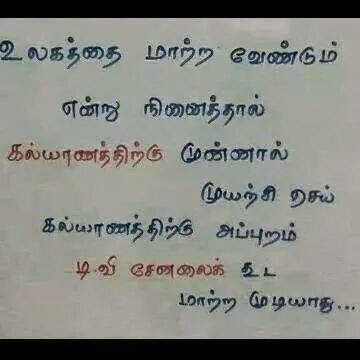 உலகத்தை மாற்ற வேண்டும்
என்று நினைத்தால்
கல்யாணத்திற்கு முன்னால்
முயற்சி செய்
கல்யாணத்திற்கு அப்புறம்
டி.வி சேனலைக் கூட
மாற்ற முடியாது...